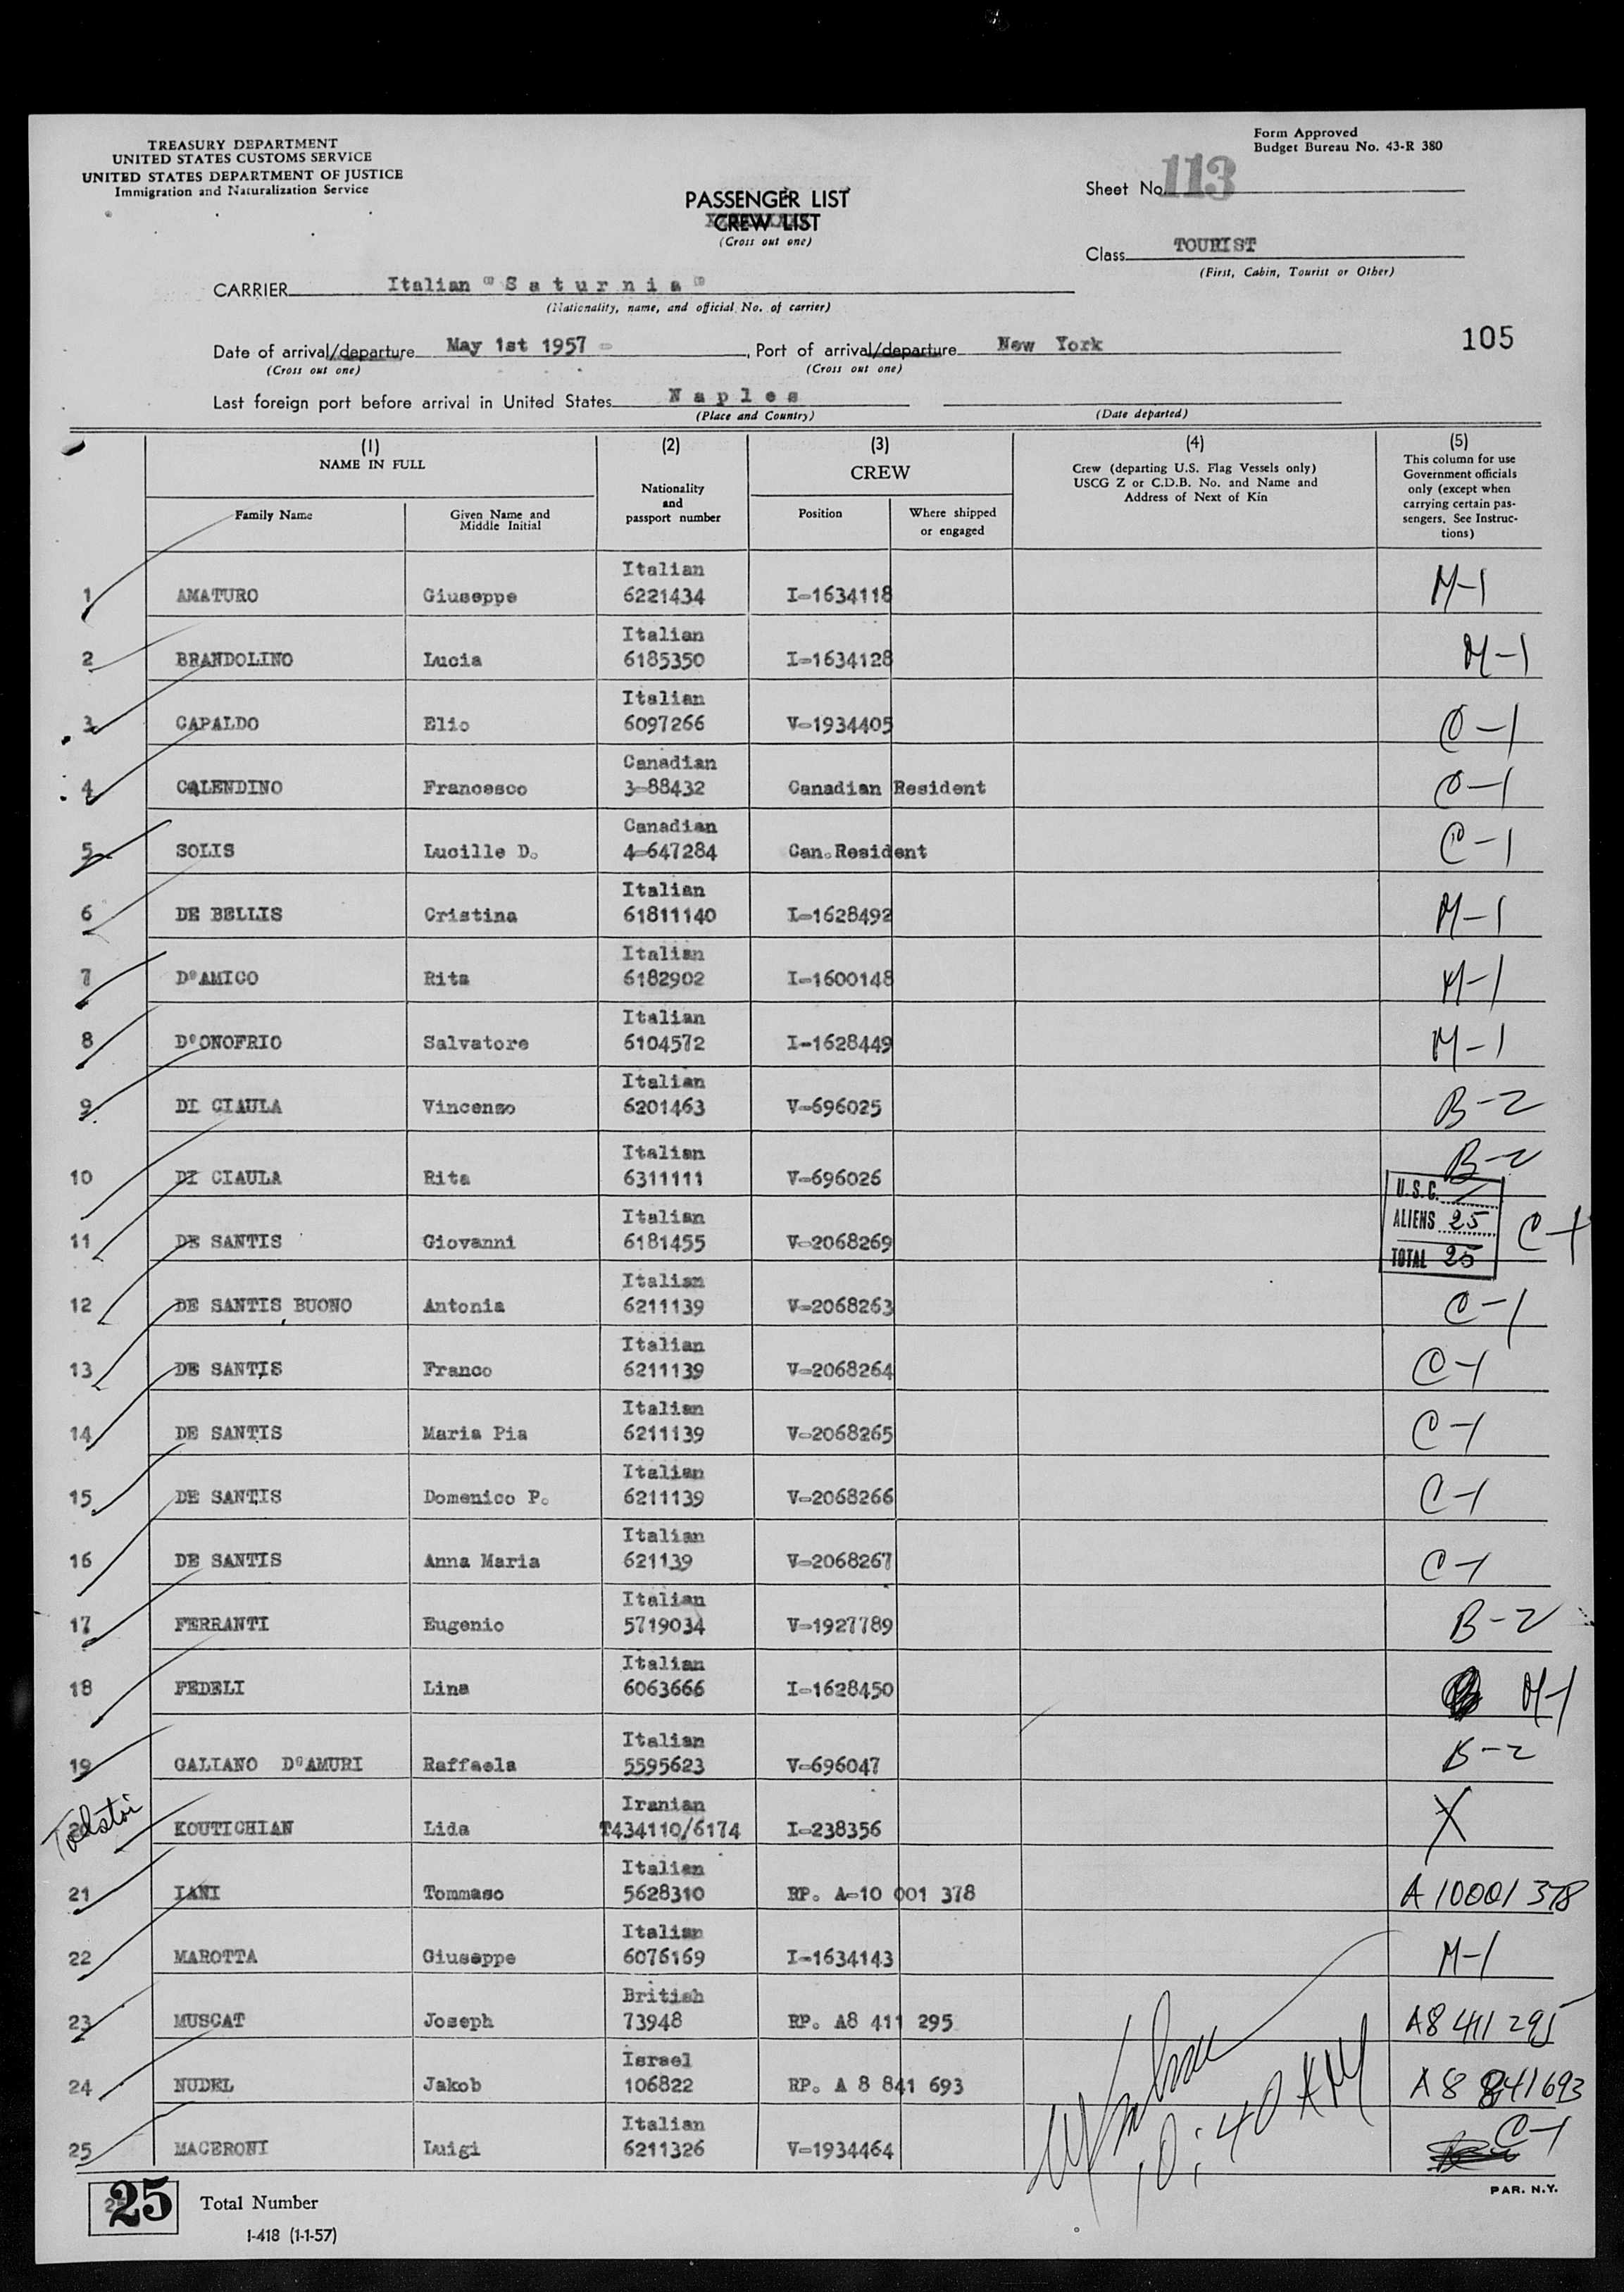 TREASURY DEPARTMENT
UNITED STATES CUSTOMS SERVICE
UNITED STATES DEPARTMENT OF JUSTICE
Immigration and Naturalization Service
Form Approved
Budget Bureau No. 43-R 380
Sheet No. 113
PASSENGER LIST
CREW LIST
(Cross out one)
Class TOURIST
(First, Cabin, Tourist or Other)
CARRIER Italian "Saturnia"
(Nationality, name, and official No. of carrier)
Date of arrival/departure May 1st 1957 - , Port of arrival/departure New York
(Cross out one) (Cross out one)
105
Last foreign port before arrival in United States Naples
(Place and Country) (Date departed)
(1) (2) (3) (4) (5)
NAME IN FULL
Family Name
Given Name and
Middle Initial
Nationality
and
passport number
CREW
Position
Where shipped
or engaged
Crew (departing U.S. Flag Vessels only)
USCG Z or C.D.B. No. and Name and
Address of Next of Kin
This column for use
Government officials
only (except when
carrying certain pas-
sengers. See Instruc-
tions)
Italian
1 AMATURO Giuseppe 6221434 I-1634118 M-1
Italian
2 BRANDOLINO Lucia 6185350 I-1634128 M-1
Italian
3 CAPALDO Elio 6097266 V-1934405 C-1
Canadian
4 CALENDINO Francesco 3-88432 Canadian Resident C-1
Canadian
5 SOLIS Lucille D. 4-647284 Can.Resident C-1
Italian
6 DE BELLIS Cristina 61811140 I-1628492 M-1
Italian
7 D'AMICO Rita 6182902 I-1600148 M-1
Italian
8 D'ONOFRIO Salvatore 6104572 I-1628449 M-1
Italian
9 DI CIAULA Vincenzo 6201463 V-696025 B-2
Italian
10 DI CIAULA Rita 6311111 V-696026 B-2
U.S.C.
ALIENS 25
TOTAL 25
Italian
11 DE SANTIS Giovanni 6181455 V-2068269 C-1
Italian
12 DE SANTIS BUONO Antonia 6211139 V-2068263 C-1
Italian
13 DE SANTIS Franco 6211139 V-2068264 C-1
Italian
14 DE SANTIS Maria Pia 6211139 V-2068265 C-1
Italian
15 DE SANTIS Domenico P. 6211139 V-2068266 C-1
Italian
16 DE SANTIS Anna Maria 621139 V-2068267 C-1
Italian
17 FERRANTI Eugenio 5719034 V-1927789 B-2
Italian
18 FEDELI Lina 6063666 I-1628450 M-1
Italian
19 GALIANO D'AMURI Raffaela 5595623 V-696047 B-2
Iranian
20 KOUTICHIAN Lida T434110/6174 I-238356 X
Italian
21 IANI Tommaso 5628310 RP. A-10 001 378 A 10001 378
Italian
22 MAROTTA Giuseppe 6076169 I-1634143 M-1
British
23 MUSCAT Joseph 73948 RP. A8 411 295 A8 411 295
Israel
24 NUDEL Jakob 106822 RP. A 8 841 693 A8 841693
Italian
25 MACERONI Luigi 6211326 V-1934464 C-1
10:40 AM
25 Total Number
I-418 (1-1-57)
PAR. N.Y.